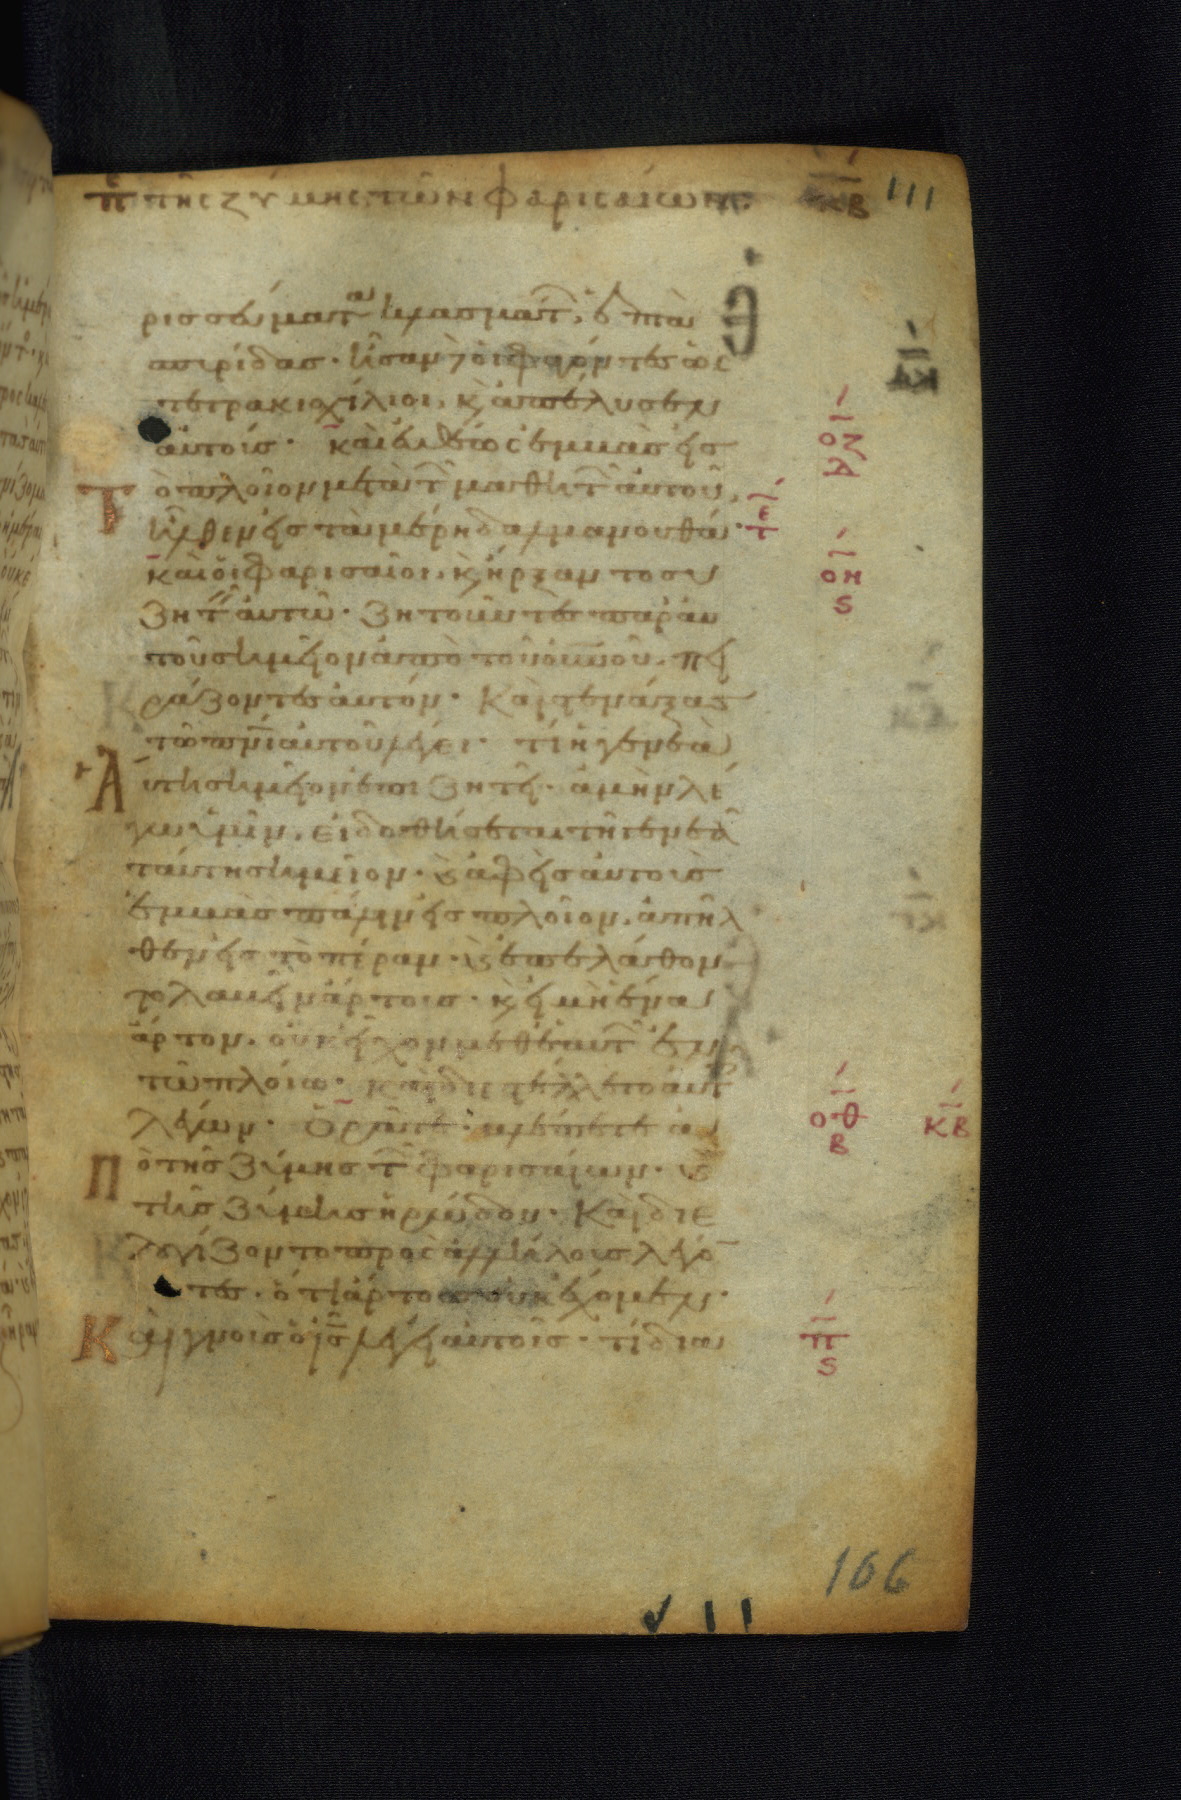 π τῆς ζύμης τῶν φαρισαίων κβ 111
ρισσεύματα κλασμάτ, ἑπτὰ
σπυρίδας· ἦσαν δὲ οἱ φαγόντες ὡς
τετρακισχίλιοι, κ ἀπέλυσεν
αὐτούς· καὶ εὐθέως ἐμβὰς εἰς
τὸ πλοῖον μετὰ τ μαθητ αὐτοῦ,
ἦλθεν εἰς τὰ μέρη δαλμανουθά·
καὶ οἱ φαρισαῖοι, κ ἤρξαντο συ
ζητ αὐτῶ· ζητοῦντες παρ' αυ
τοῦ σημεῖον ἀπὸ τοῦ οὐνοῦ, πει
ράζοντες αὐτόν· Καὶ στενάξας
τῶ πνι αὐτοῦ λέγει· τί ἡ γενεὰ
αὕτη σημεῖον ἐπιζητεῖ· ἀμὴν λέ
γω ὑμῖν, εἰ δοθήσεται τῇ γενεᾶ
ταύτη σημεῖον· κ ἀφεὶς αὐτοὺς
ἐμβὰς πάλιν εἰς πλοῖον, ἀπῆλ
θεν εἰς τὸ πέραν· κ ἐπελάθον
το λαβεῖν ἄρτους· κ εἰ μὴ ἕνα
ἄρτον, οὐκ εἶχον μεθ' ἑαυτ ἐν
τῶ πλοίω· Καὶ διεστέλλετο αὐτ
λέγων· Ὁρᾶτε· βλέπετε ἀ
πὸ τῆς ζύμης τ φαρισαίων· κ
τῆς ζύμης ἡρώδου· Καὶ διε
λογίζοντο πρὸς ἀλλήλους λέγο
τες· ὅτι ἄρτους οὐκ ἔχομεν·
Καὶ γνοὺς ὁ ις λέγει αὐτοῖς· τί δια
οζ
οη
ς
οθ
β
κβ
π
ς
166